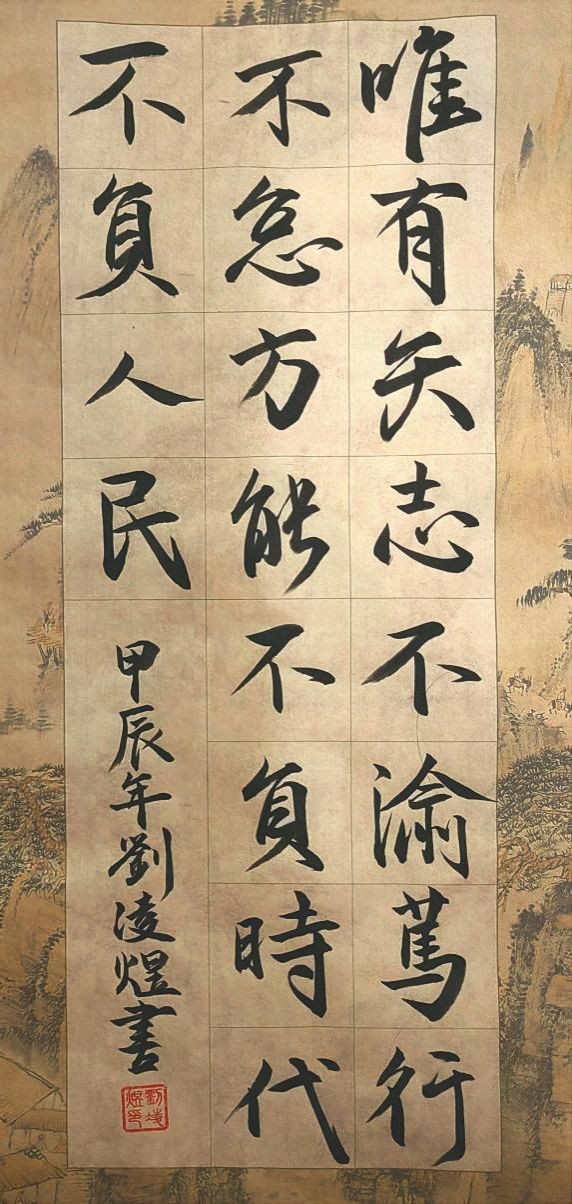 唯有矢志不渝篤行
不怠方能不負時代
不負人民
甲辰年劉凌煜書
劉凌煜印